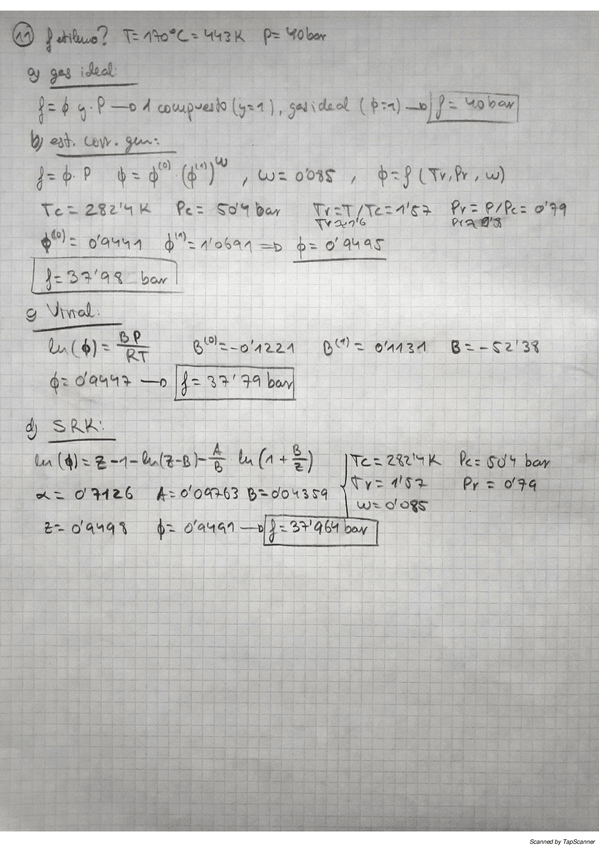 11 f etileno? T=170°C=443K P=40bar
a) gas ideal:
f=ϕ y·P → 1 compuesto (y=1), gas ideal (ϕ=1) → f=40bar
b) est. corr. gen:
f=ϕ·P ϕ=ϕ^(0)·(ϕ^(1))^ω, ω=0'085, ϕ=f(Tr,Pr,ω)
Tc=282'4K Pc=50'4 bar Tr=T/Tc=1'57 Pr=P/Pc=0'79
Tr≈1'6
ϕ^(0)=0'9441 ϕ^(1)=1'0691 ⇒ ϕ=0'9495
f=37'98 bar
c) Virial:
ln(ϕ)=BP/RT B^(0)=-0'1221 B^(1)=0'1131 B=-52'38
ϕ=0'9447 → f=37'79 bar
d) SRK:
ln(ϕ)=Z-1-ln(Z-B)-A/B ln(1+B/Z) Tc=282'4K Pc=50'4 bar
Tr=1'57 Pr=0'79
ω=0'085
α=0'7126 A=0'09763 B=0'04359
Z=0'9498 ϕ=0'9491 → f=37'964 bar
Scanned by TapScanner